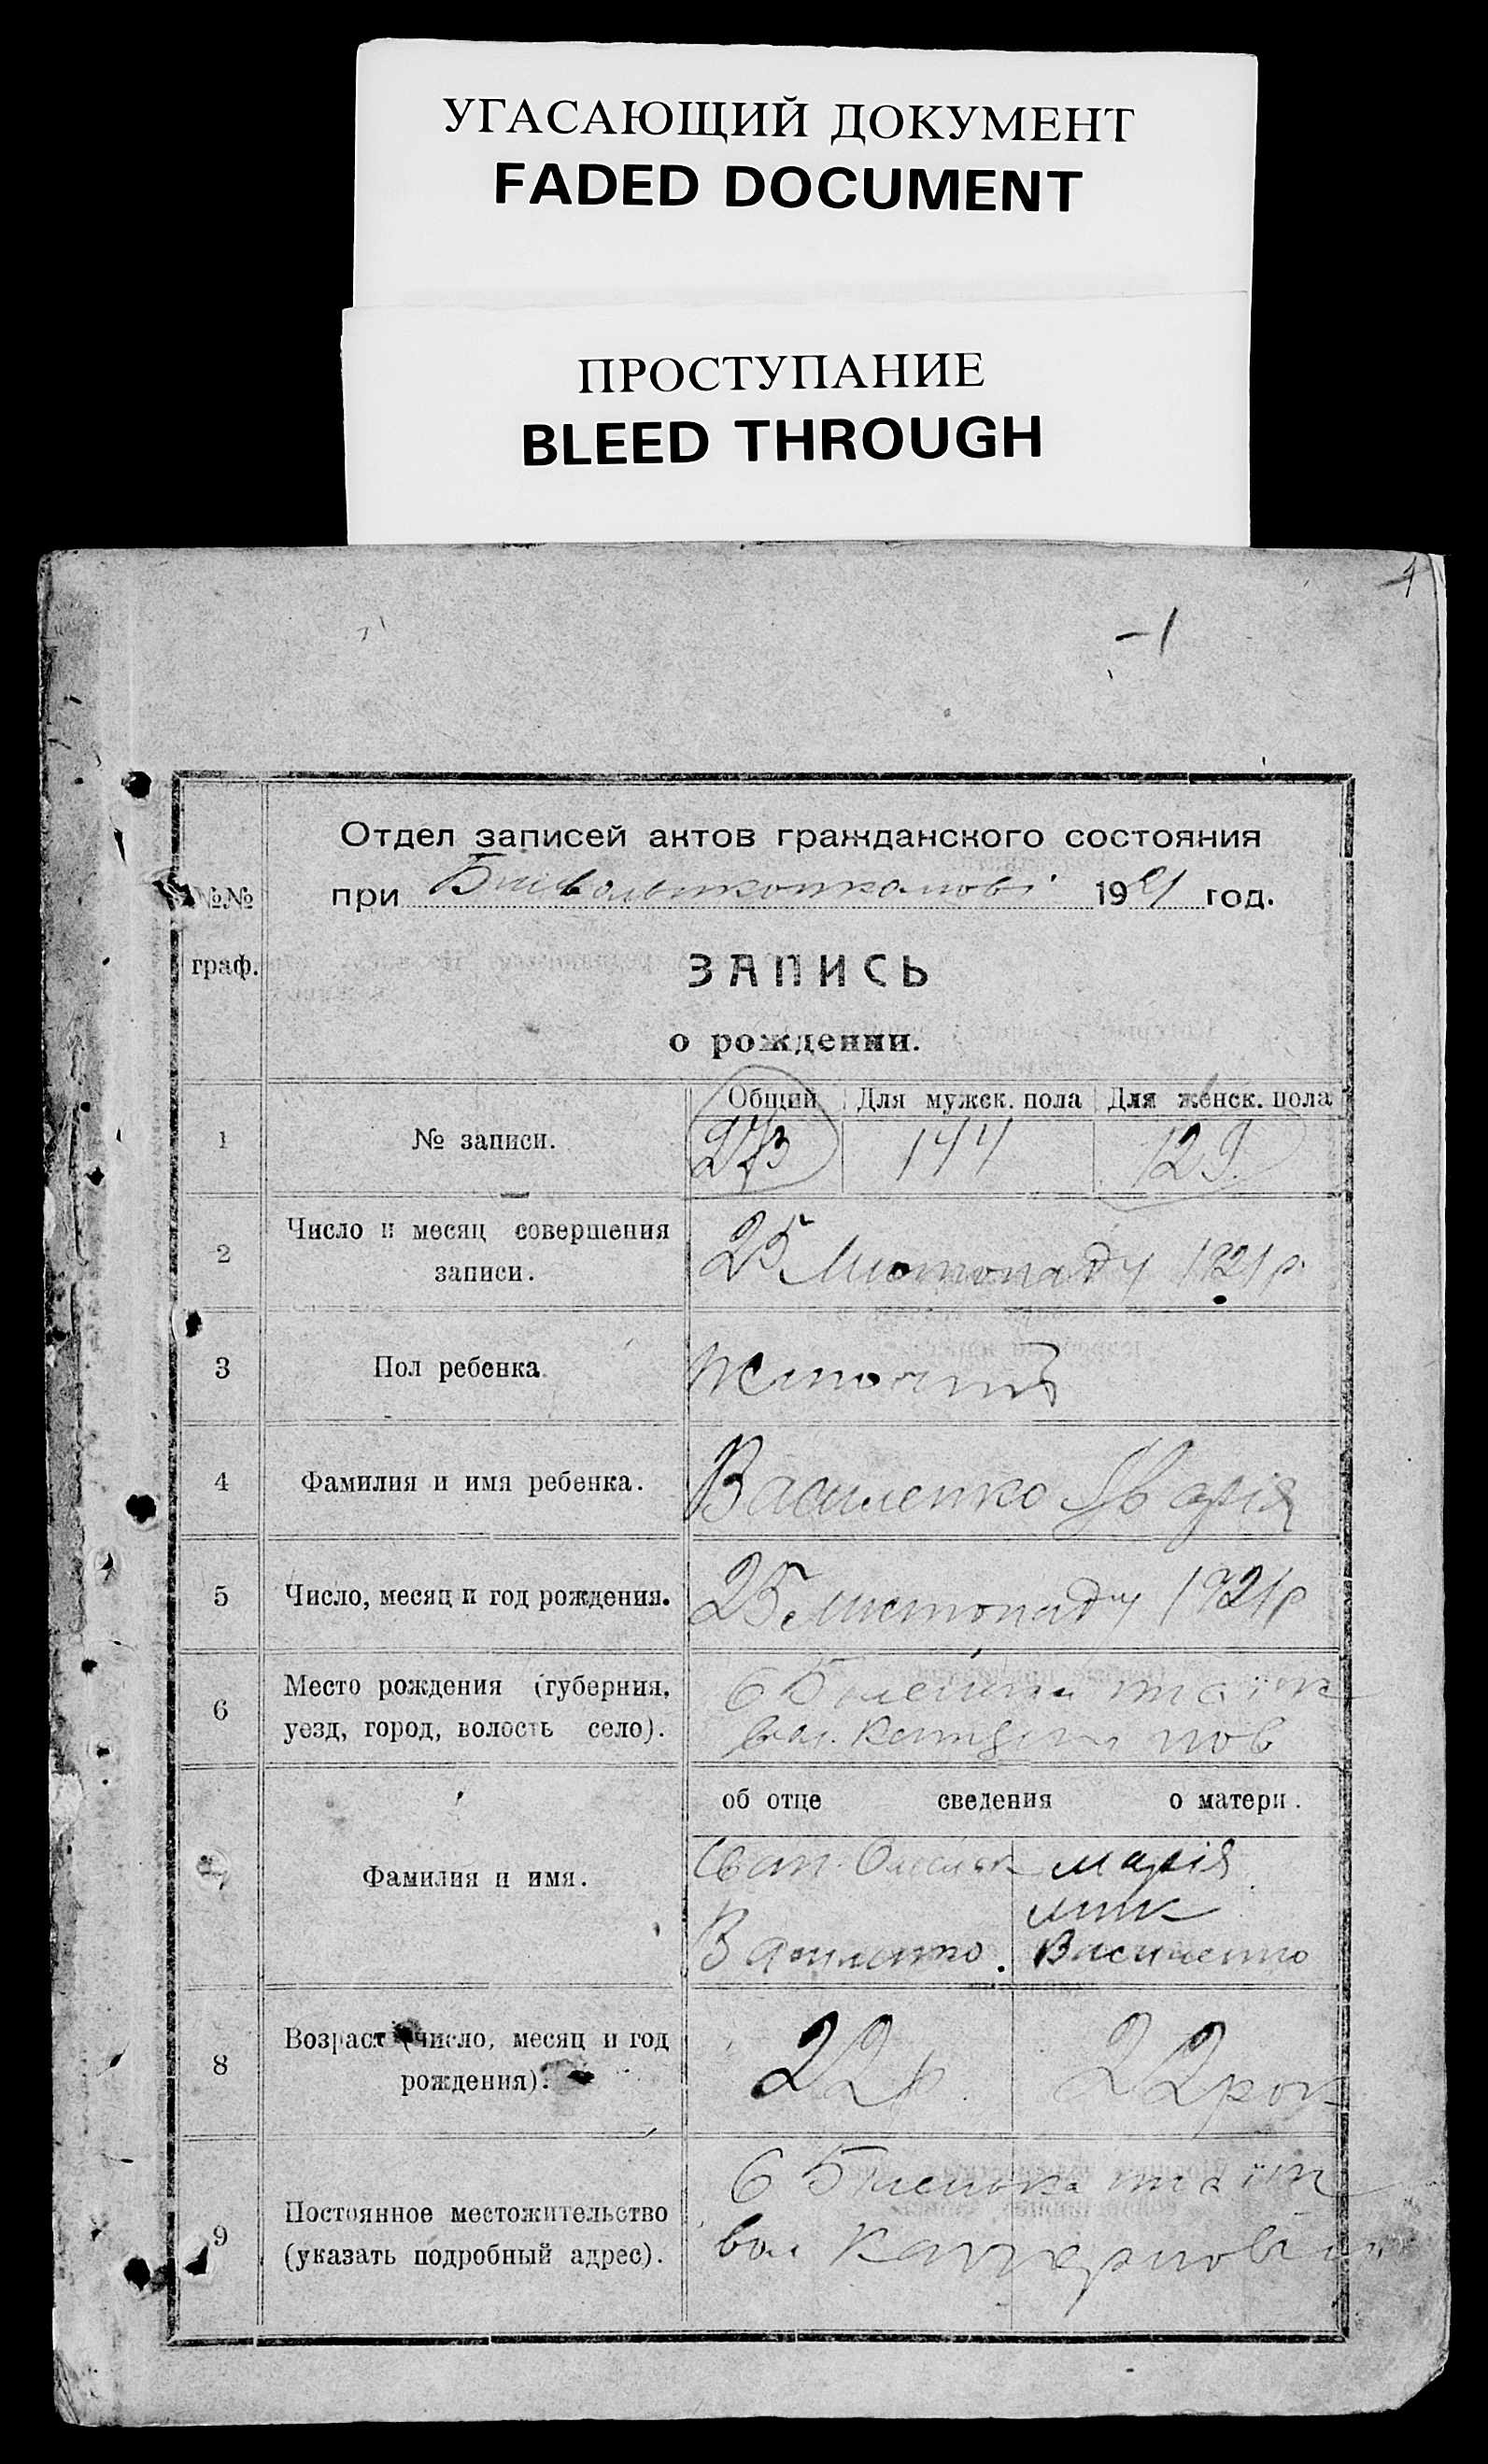 УГАСАЮЩИЙ ДОКУМЕНТ
FADED DOCUMENT
ПРОСТУПАНИЕ
BLEED THROUGH
1
-1
Отдел записей актов гражданского состояния
при 1921 год.
№№
граф.
ЗАПИСЬ
о рождении.
Общий Для мужск. пола Для женск. пола
1 № записи. 273 144 129
2 Число и месяц совершения
записи.
25 Листопаду 1921 р.
3 Пол ребенка
4 Фамилия и имя ребенка. Василенко Марія
5 Число, месяц и год рождения. 25 Листопаду 1921 р
6 Место рождения (губерния,
уезд, город, волость село).
вол. пов
об отце сведения о матери.
Фамилия и имя.
Іван Марія
Василенко. Василенко
8 Возраст (число, месяц и год
рождения).
22 р 22 рок
9 Постоянное местожительство
(указать подробный адрес).
вол